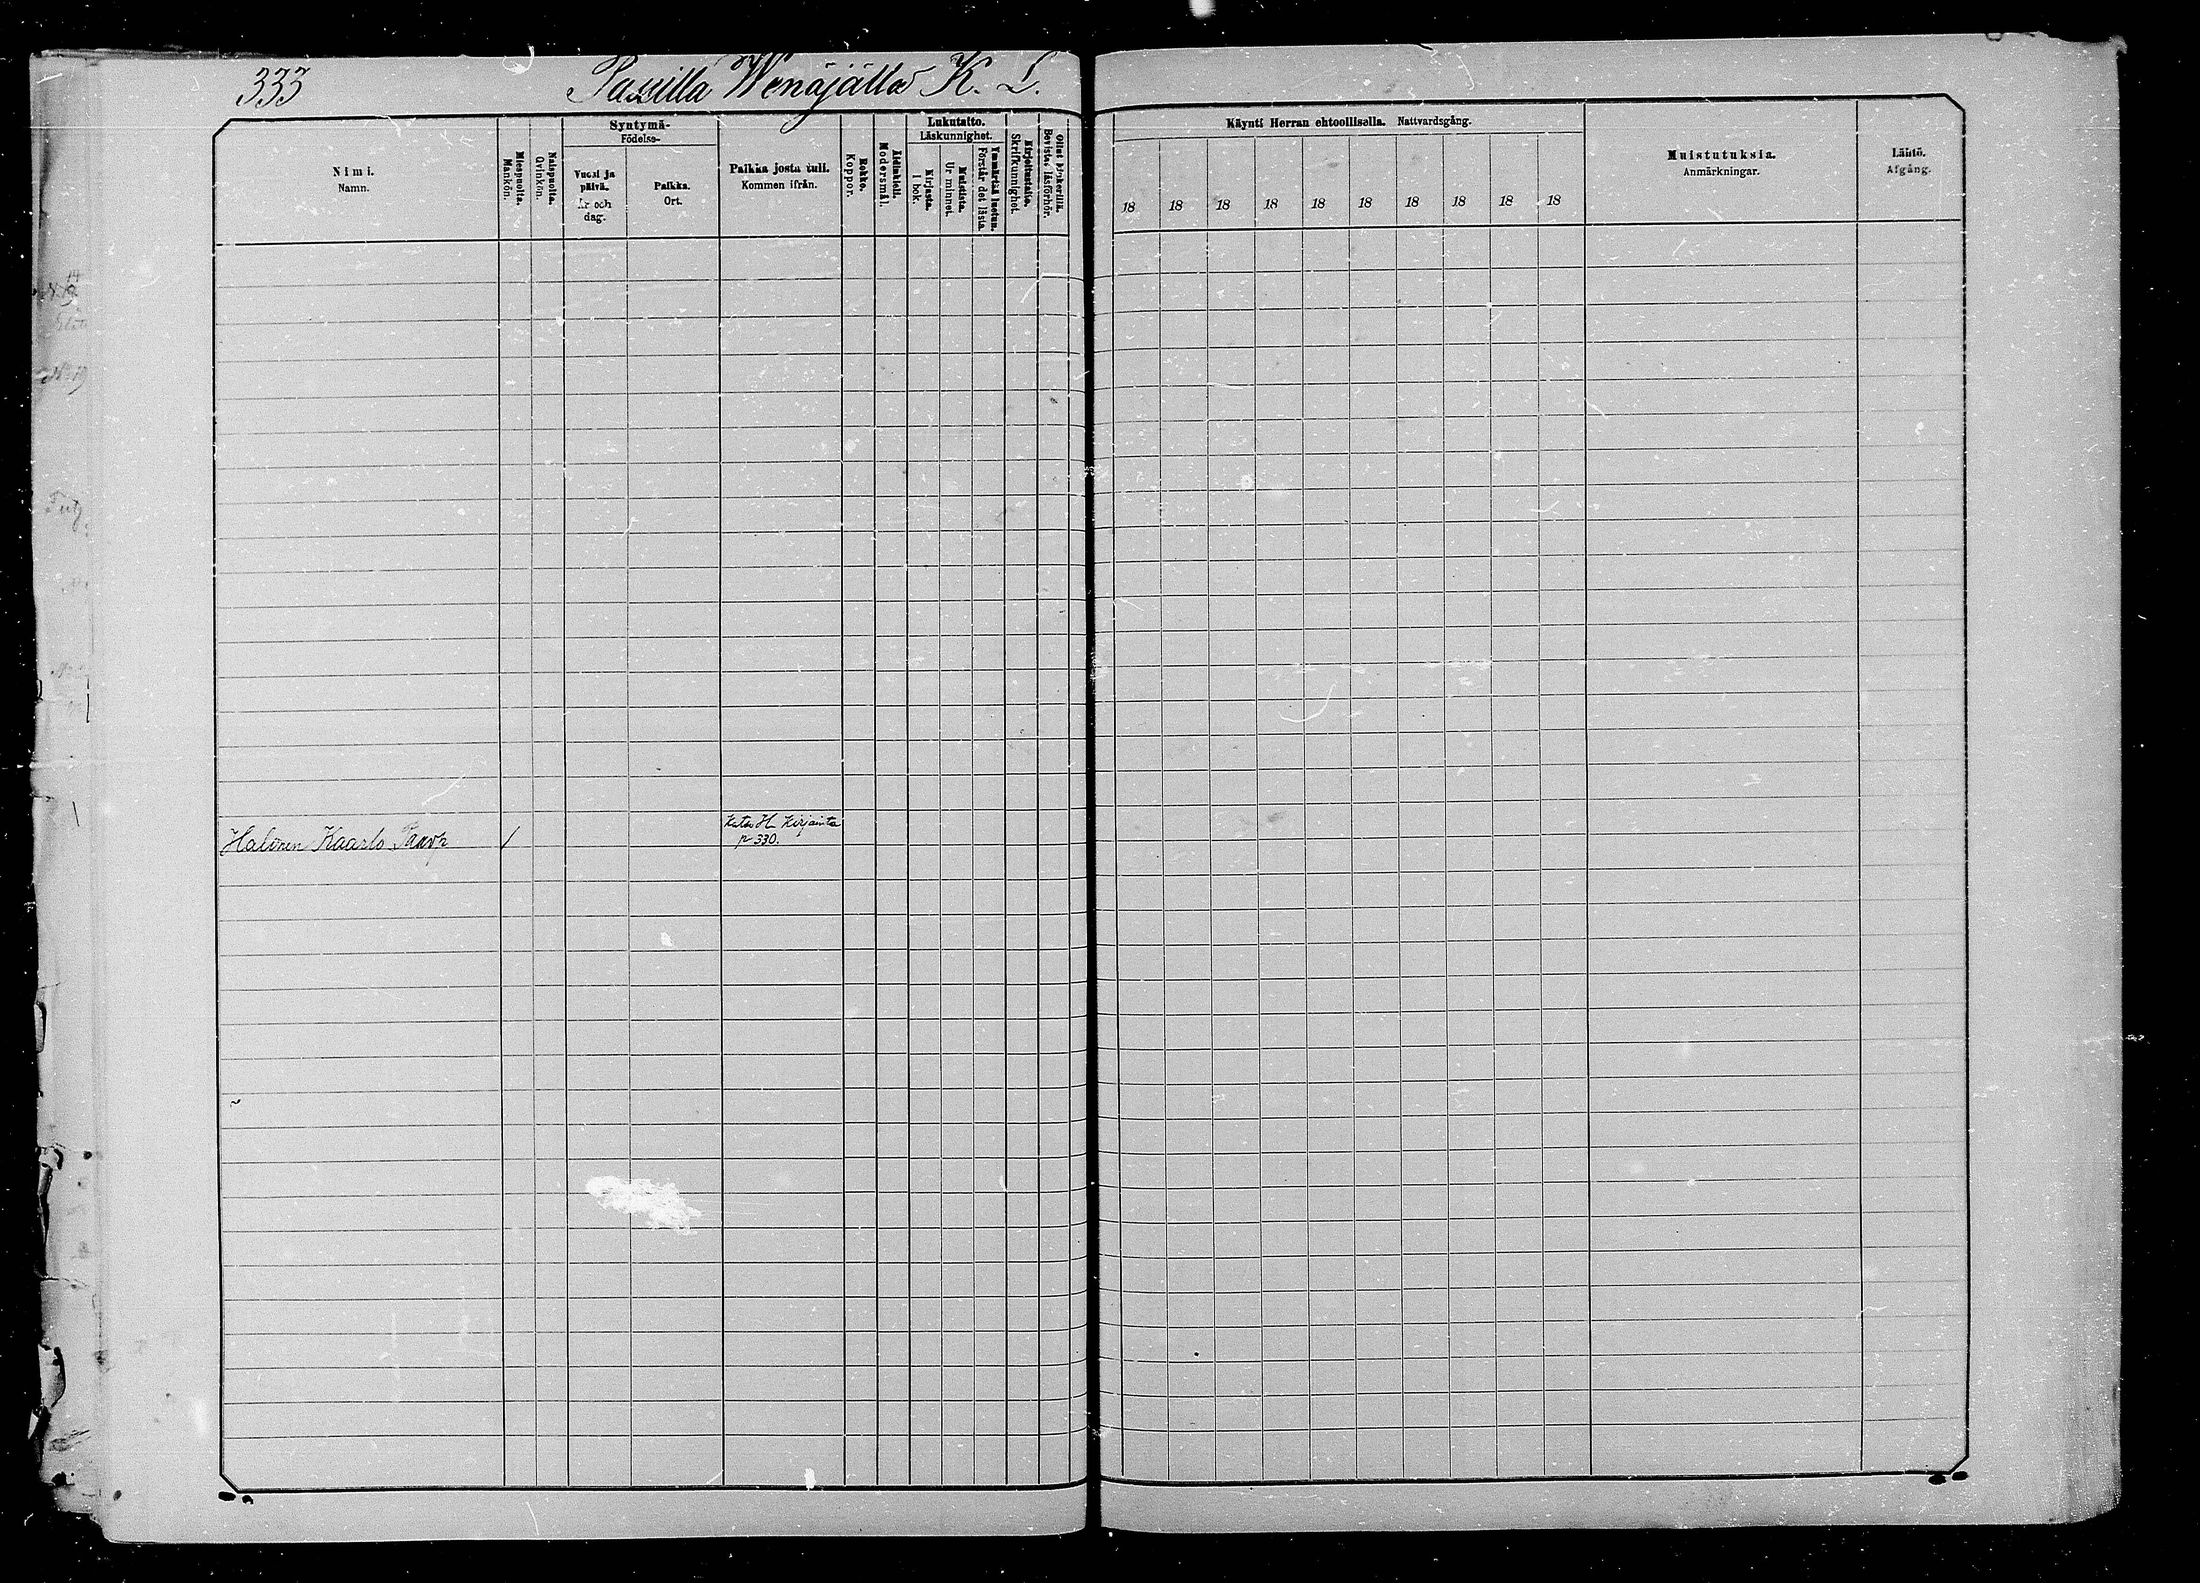 333
Passilla Wenäjällä K. L.
Nimi.
Namn.
Miespuolia.
Mankön.
Naispuolia.
Qvinkön.
Syntymä-
Födelse-
Vuosi ja
päivä.
År och
dag.
Paikka.
Ort.
Paikka josta tuli.
Kommen ifrån.
Rokko.
Koppor.
Äidinkieli.
Modersmål.
Lukutaito.
Läskunnighet.
Kirjasta.
I bok.
Muistista.
Ur minnet.
Ymmärtää luetun.
Förstår det lästa.
Kirjoitustaito.
Skrifkunnighet.
Ollut kinkerillä.
Bevistat läsförhör.
Käynti Herran ehtoollisella. Nattvardsgång.
18 18 18 18 18 18 18 18 18 18
Muistutuksia.
Anmärkningar.
Lähtö.
Afgång.
Halonen Kaarlo Paavp 1 Katso H Kirjainta
p 330.